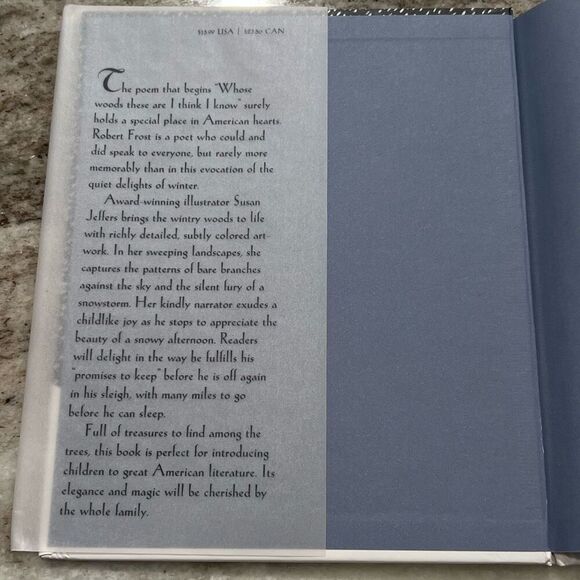 $15.99 USA | $23.50 CAN
The poem that begins "Whose
woods these are I think I know" surely
holds a special place in American hearts.
Robert Frost is a poet who could and
did speak to everyone, but rarely more
memorably than in this evocation of the
quiet delights of winter.
Award-winning illustrator Susan
Jeffers brings the wintry woods to life
with richly detailed, subtly colored art-
work. In her sweeping landscapes, she
captures the patterns of bare branches
against the sky and the silent fury of a
snowstorm. Her kindly narrator exudes a
childlike joy as he stops to appreciate the
beauty of a snowy afternoon. Readers
will delight in the way he fulfills his
"promises to keep" before he is off again
in his sleigh, with many miles to go
before he can sleep.
Full of treasures to find among the
trees, this book is perfect for introducing
children to great American literature. Its
elegance and magic will be cherished by
the whole family.